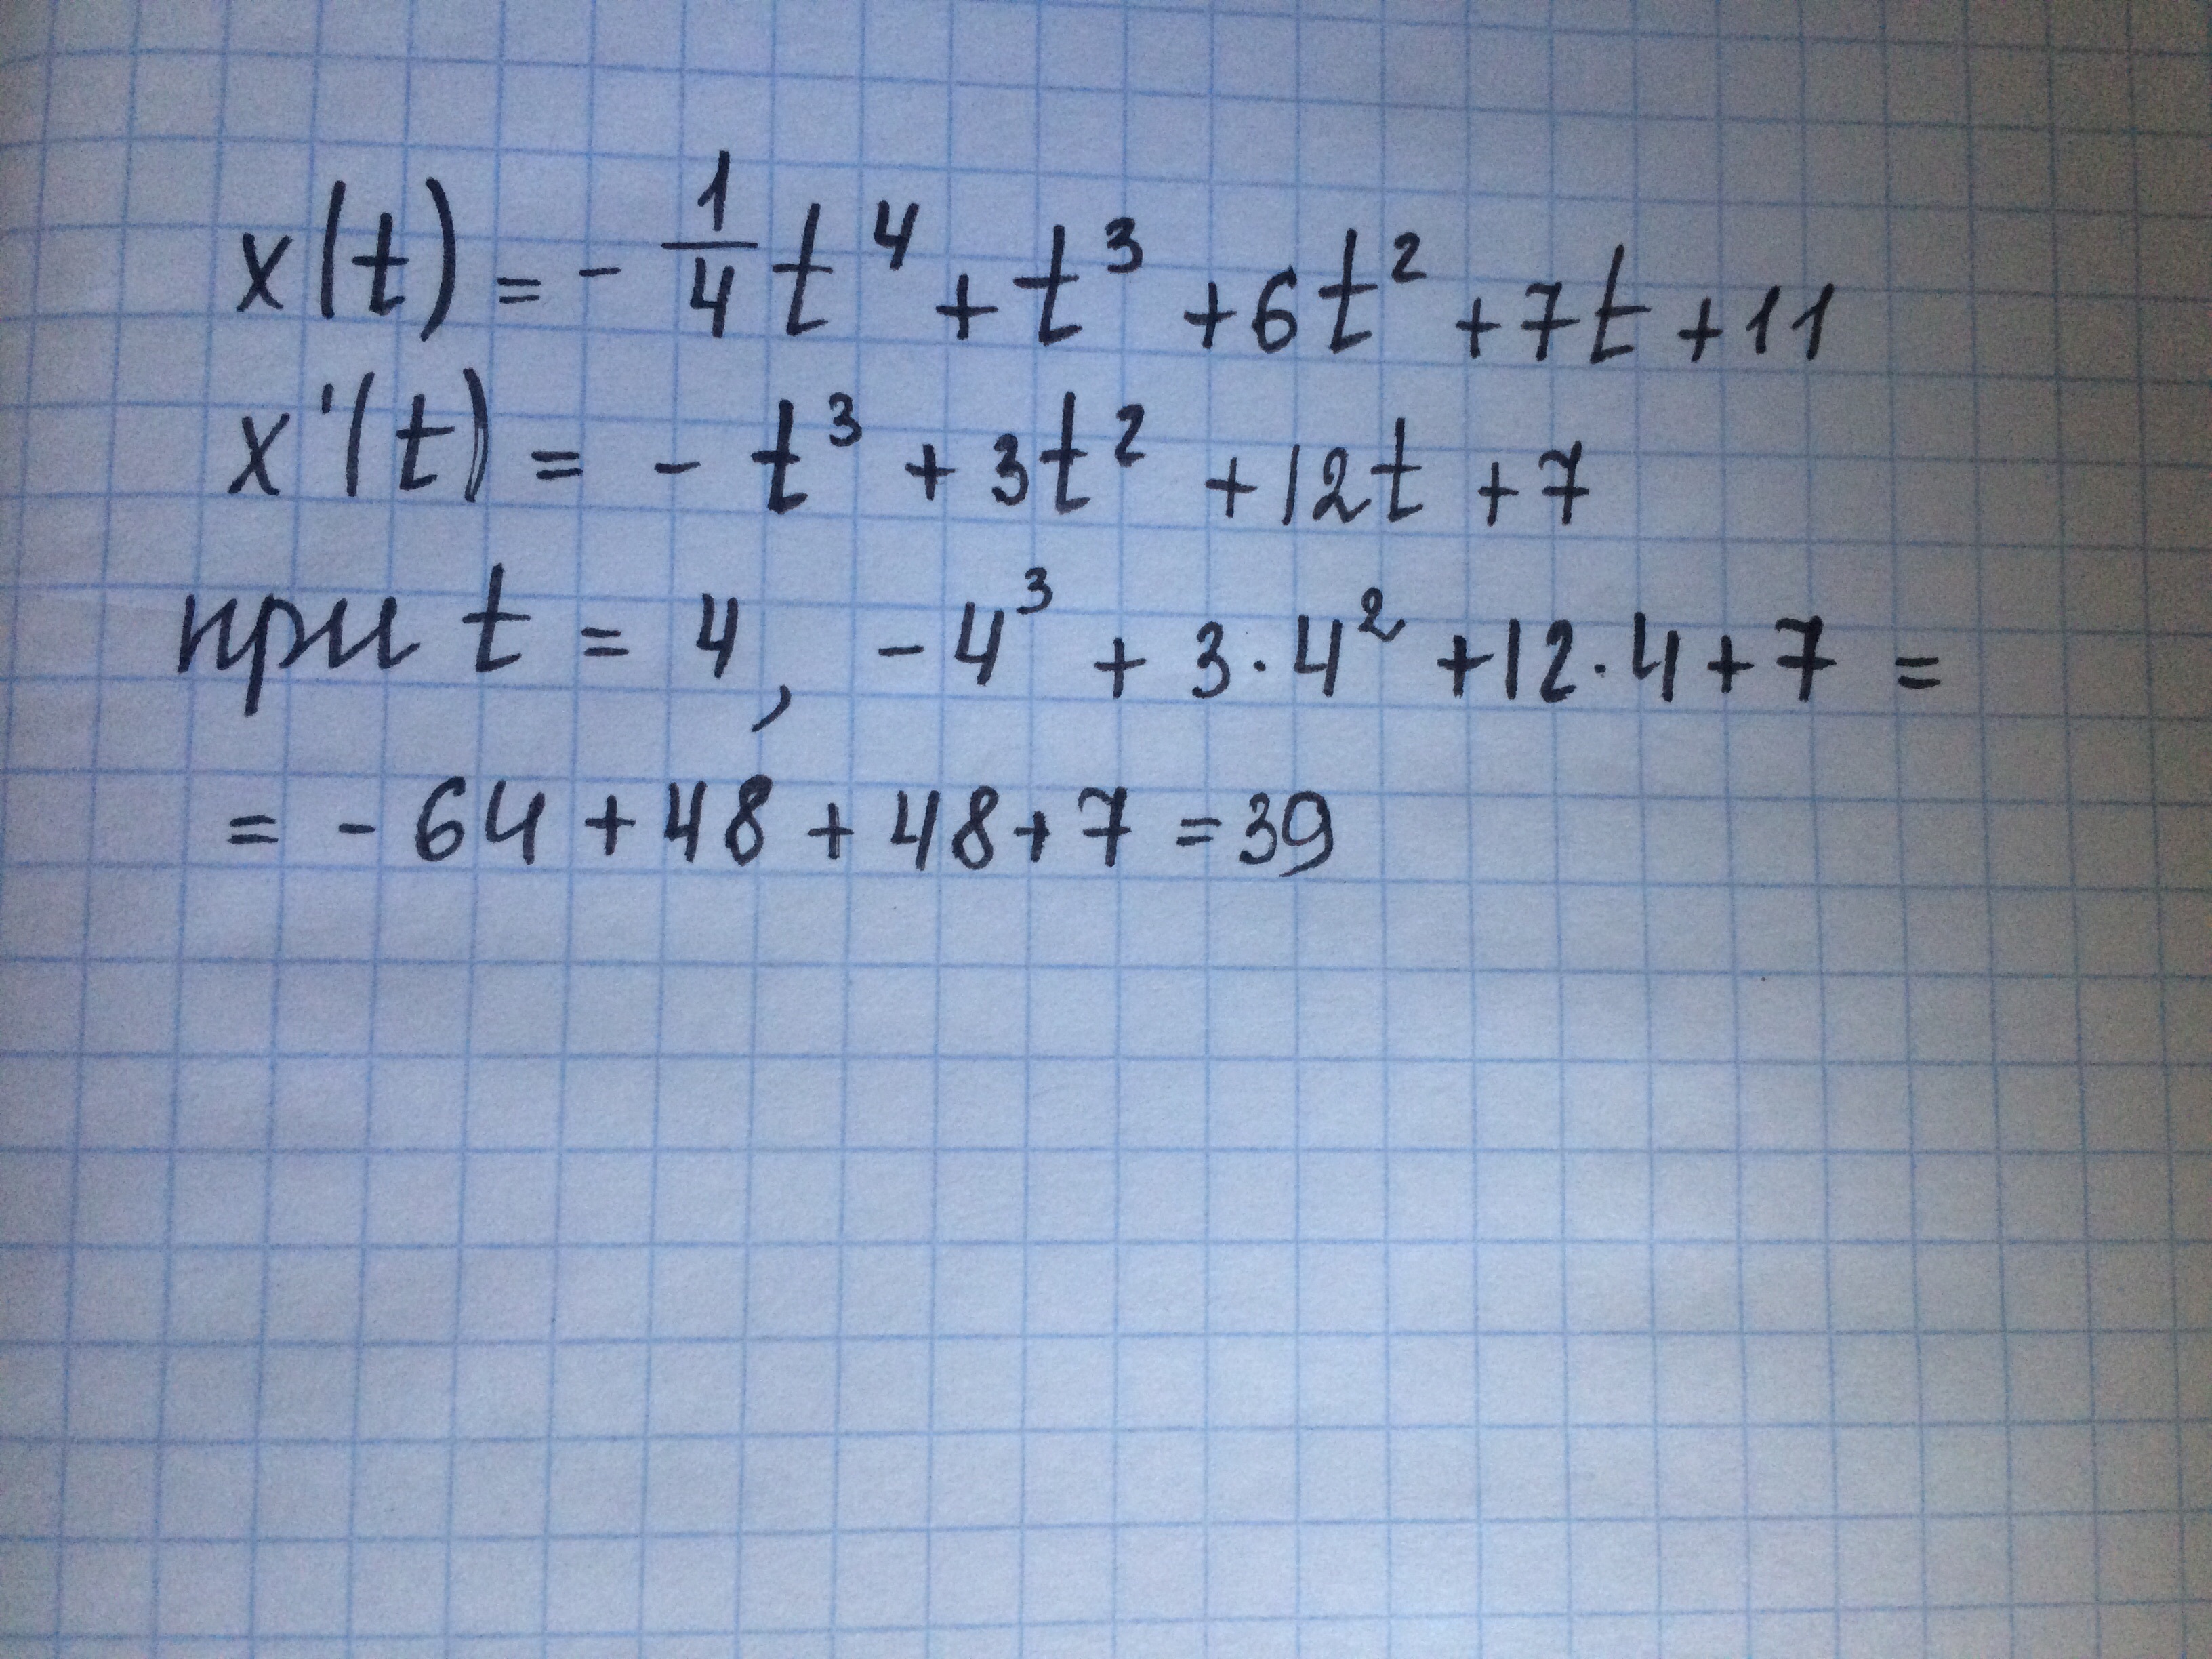 x(t) = - 1/4 t⁴ + t³ + 6t² + 7t + 11
x'(t) = - t³ + 3t² + 12t + 7
при t = 4, - 4³ + 3 · 4² + 12 · 4 + 7 =
= - 64 + 48 + 48 + 7 = 39